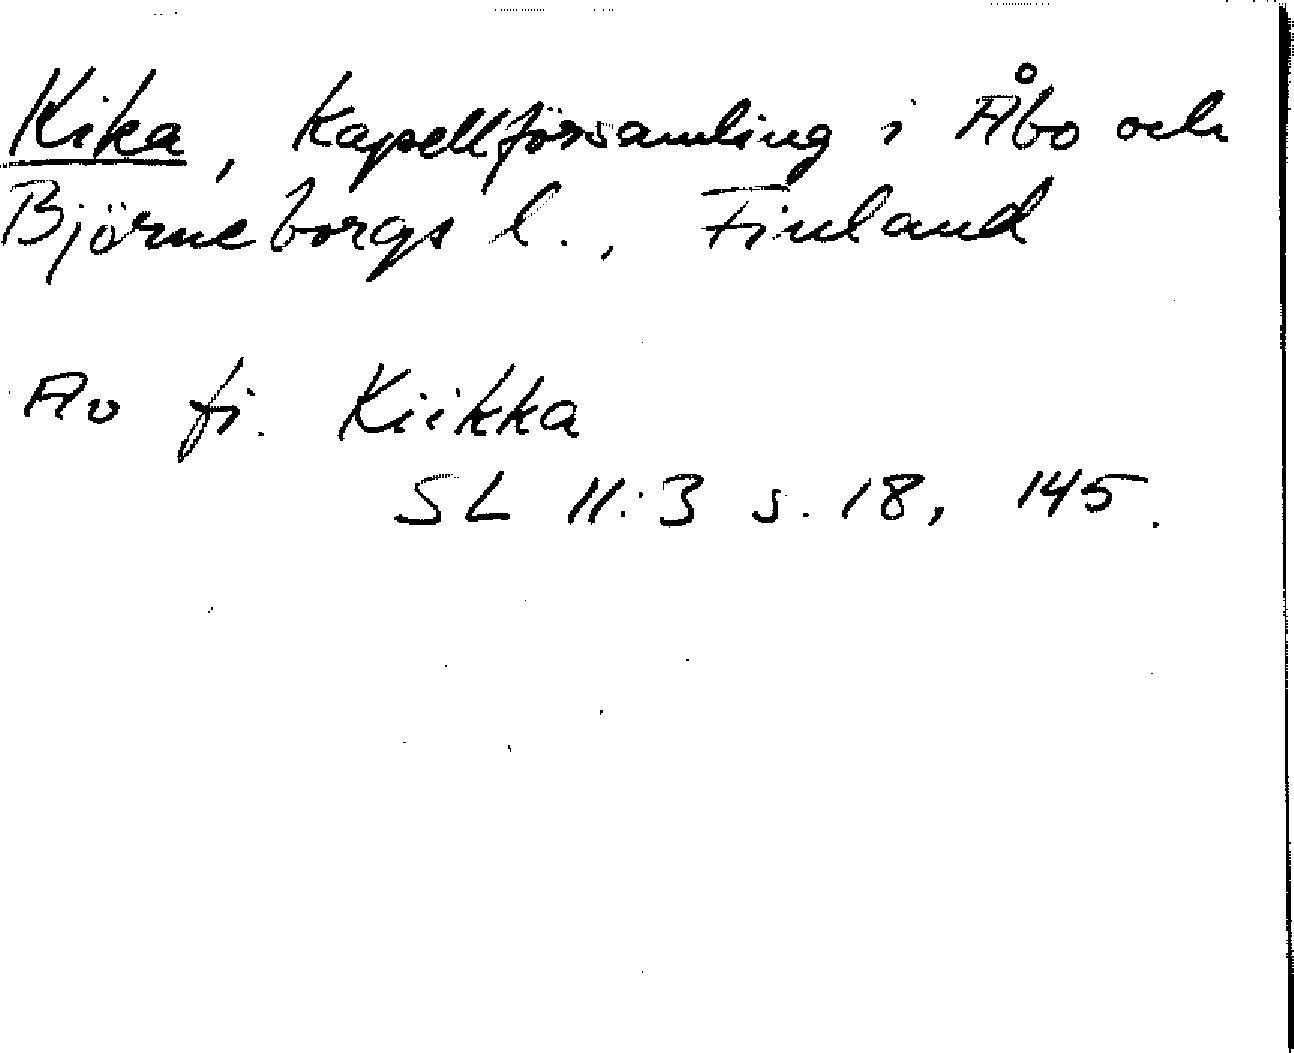 Kika, kapellförsamling i Åbo och
Björneborgs l., Finland
Av fi. Kiikka
SL 11:3 s. 18, 145.